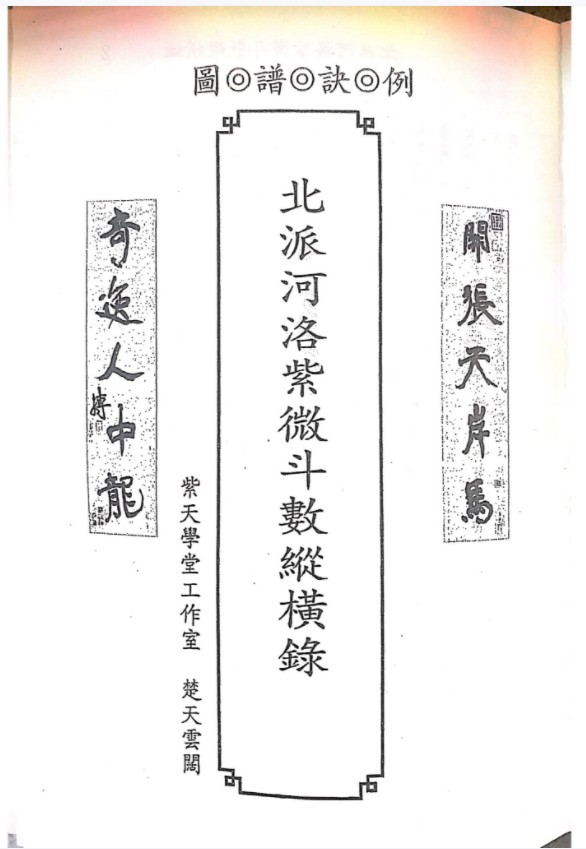 圖◎譜◎訣◎例
開張天岸馬
北派河洛紫微斗數縱橫錄
奇逸人中龍
紫天學堂工作室 楚天雲闊